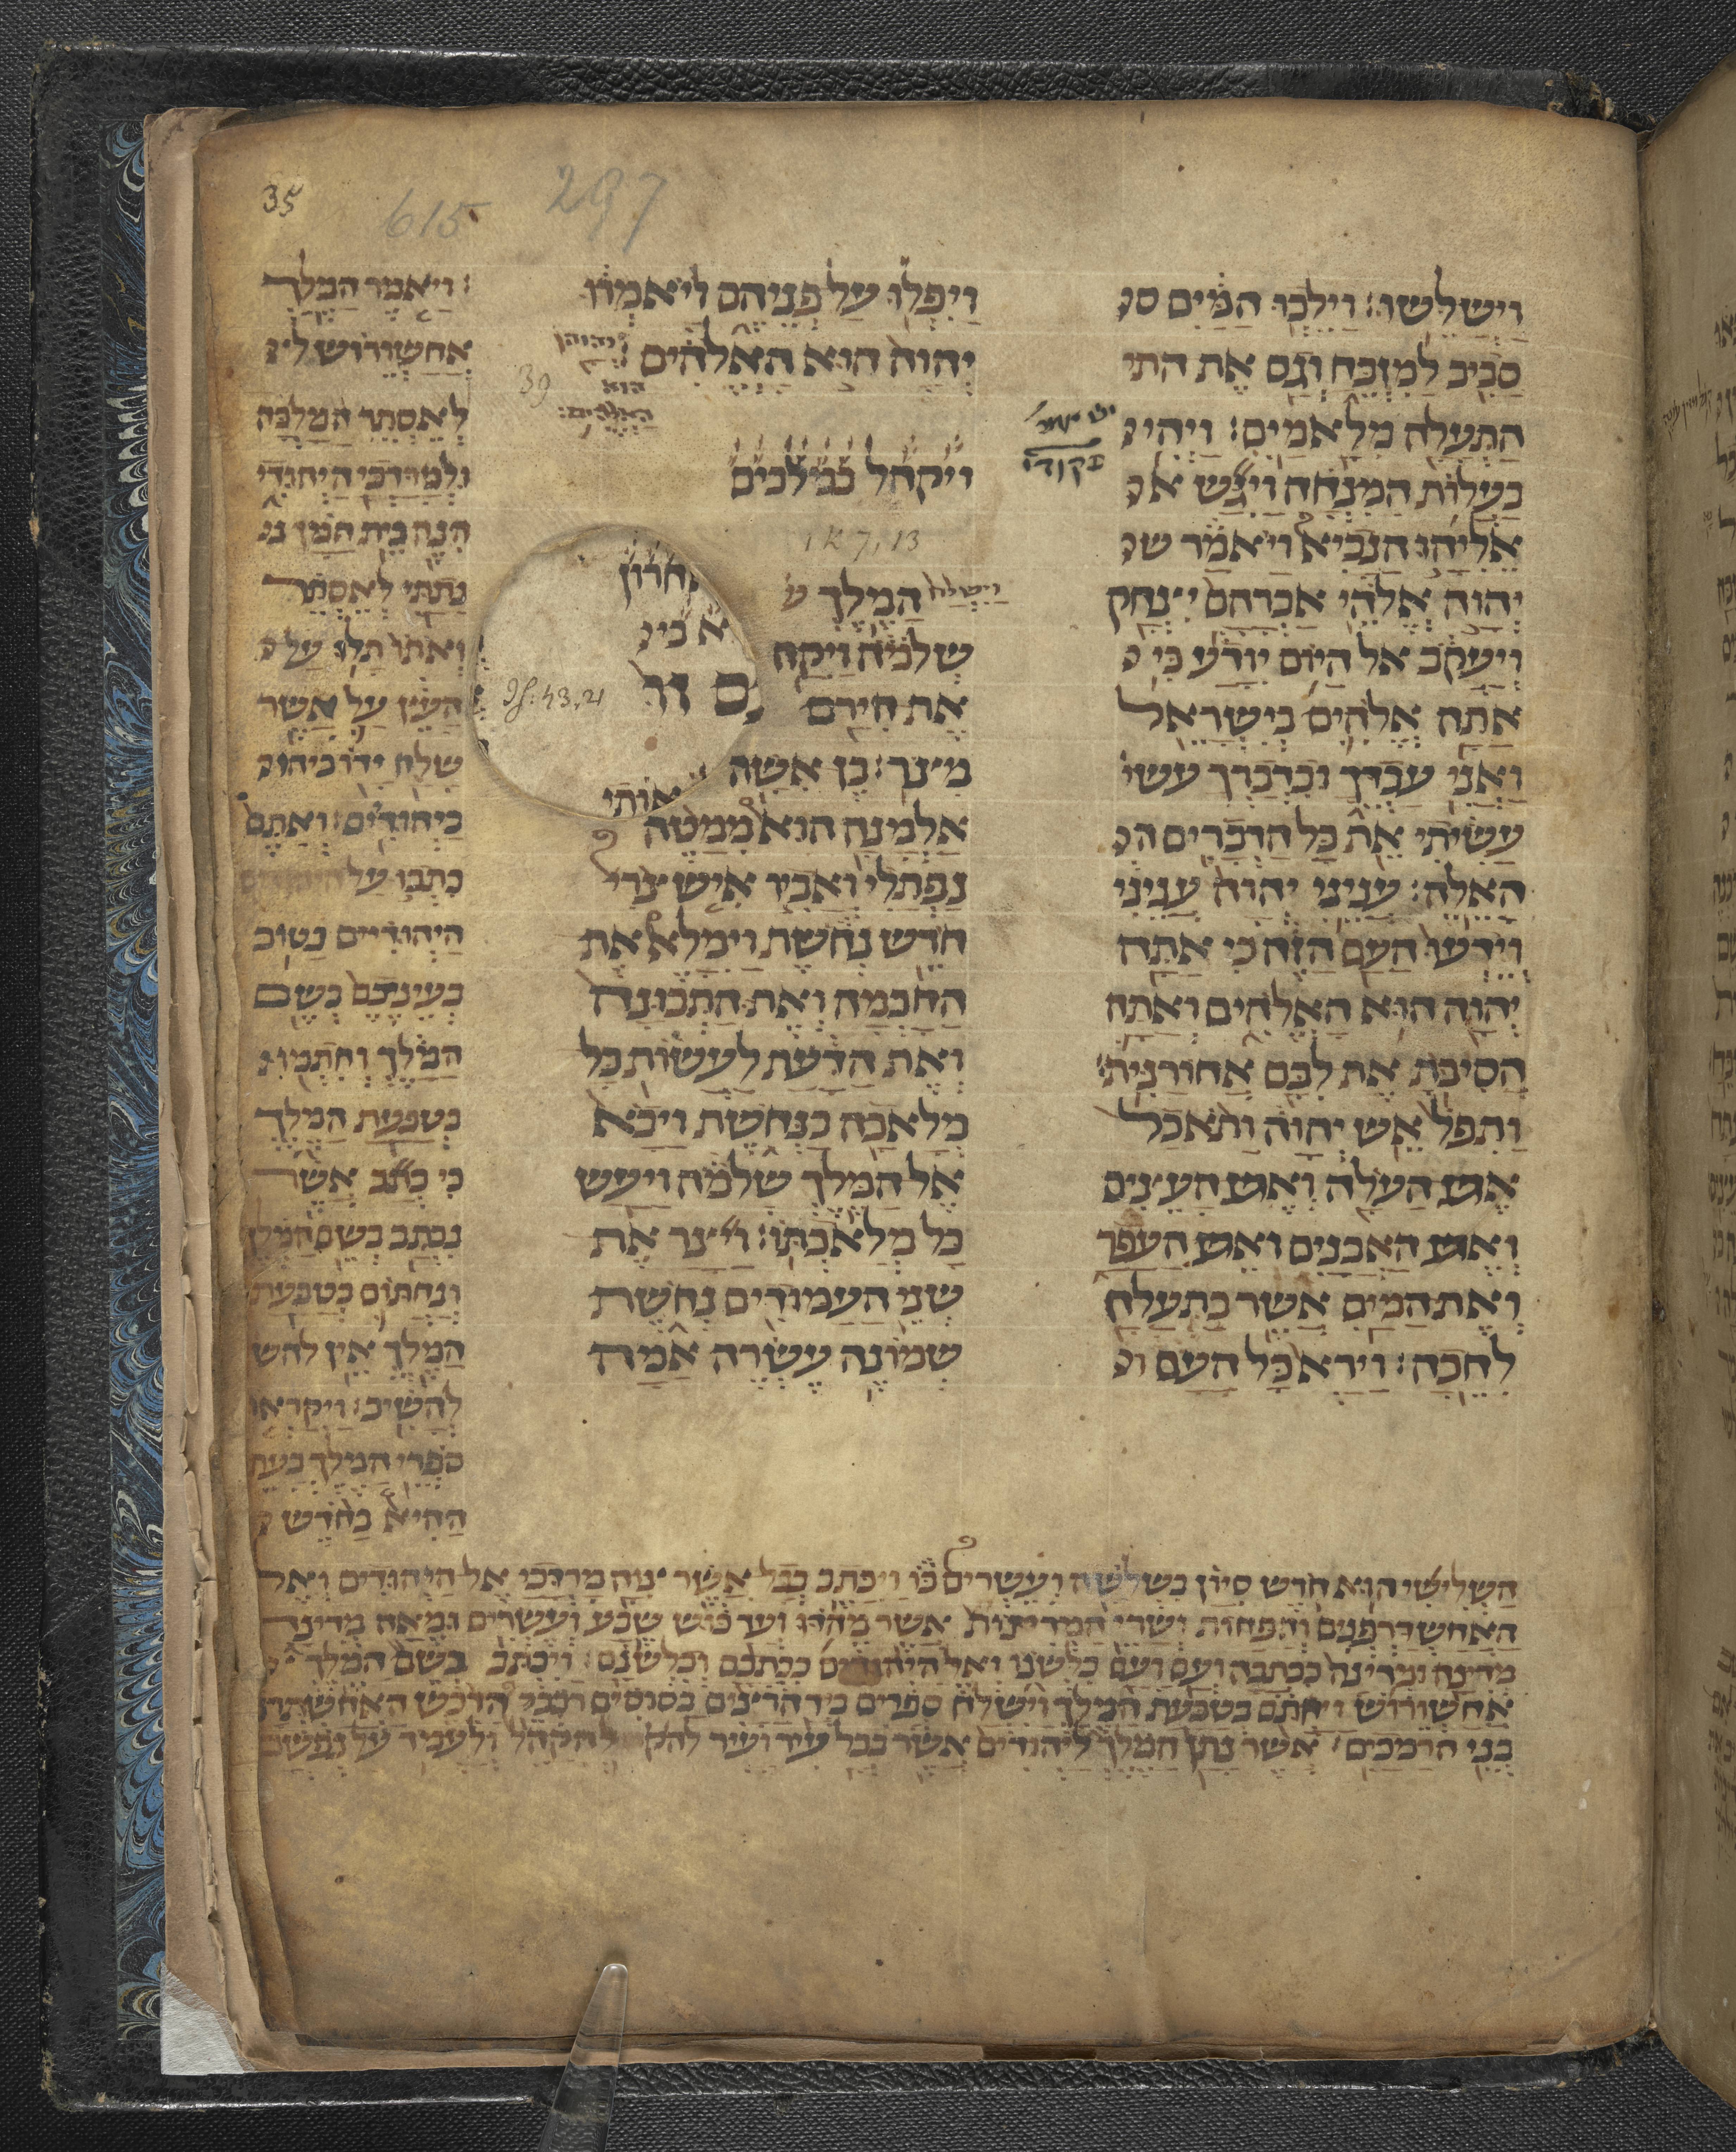 35
615
297
וישלשו: וילכו המים ס
סביב למזבח וגם את התי
התעלה מלאמים: ויהי
בעלות המנחה ויגש א
אליהו הנביא ויאמר
יהוה אלהי אברהם יצחק
ויעקב אל היום יודע כי
אתה אלהים בישראל
ואני עבדך ובדברך עשי
עשיתי את כל הדברים ה
האלה: ענינו יהוה ענינו
וידעו העם הזה כי אתה
יהוה הוא האלהים ואתה
הסיבת את לבם אחורנית:
ותפל אש יהוה ותאכל
את העלה ואת העצים
ואת האבנים ואת העפר
ואת המים אשר בתעלה
לחכה: וירא כל העם ו
פקודי
ויפלו על פניהם ויאמרו
יהוה הוא האלהים יהוה
הוא
האלהים:
39
ויקהל במלכים
1 K 7, 13
וישלח המלך
שלמה ויקח
את חירם
מצר: בן אשה
אלמנה הוא ממטה
נפתלי ואביו איש צרי
חרש נחשת וימלא את
החכמה ואת התבונה
ואת הדעת לעשות כל
מלאכה בנחשת ויבא
אל המלך שלמה ויעש
כל מלאכתו: ויצר את
שני העמודים נחשת
שמונה עשרה אמה
Js. 43, 21
ויאמר המלך
אחשורוש ל
לאסתר המלכה
ולמרדכי היהודי
הנה בית המן נ
נתתי לאסתר
ואתו תלו על
העץ על אשר
שלח ידו ביהו
ביהודים: ואתם
כתבו על היהודים
היהודיים כטוב
בעיניכם בשם
המלך וחתמו
בטבעת המלך
כי כתב אשר
נכתב בשם המלך
ונחתום בטבעת
המלך אין להש
להשיב: ויקראו
ספרי המלך בעת
ההיא בחדש
השלישי הוא חדש סיון בשלשה ועשרים בו ויכתב ככל אשר צוה מרדכי אל היהודים ואל
האחשדרפנים והפחות ושרי המדינות אשר מהדו ועד כוש שבע ועשרים ומאה מדינה
מדינה ומדינה ככתבה ועם ועם כלשנו ואל היהודים ככתבם וכלשונם: ויכתב בשם המלך
אחשורוש ויחתם בטבעת המלך וישלח ספרים ביד הרצים בסוסים רכבי הרכש האחשתרנים
בני הרמכים: אשר נתן המלך ליהודים אשר בכל עיר ועיר להקהל ולעמד על נפשם